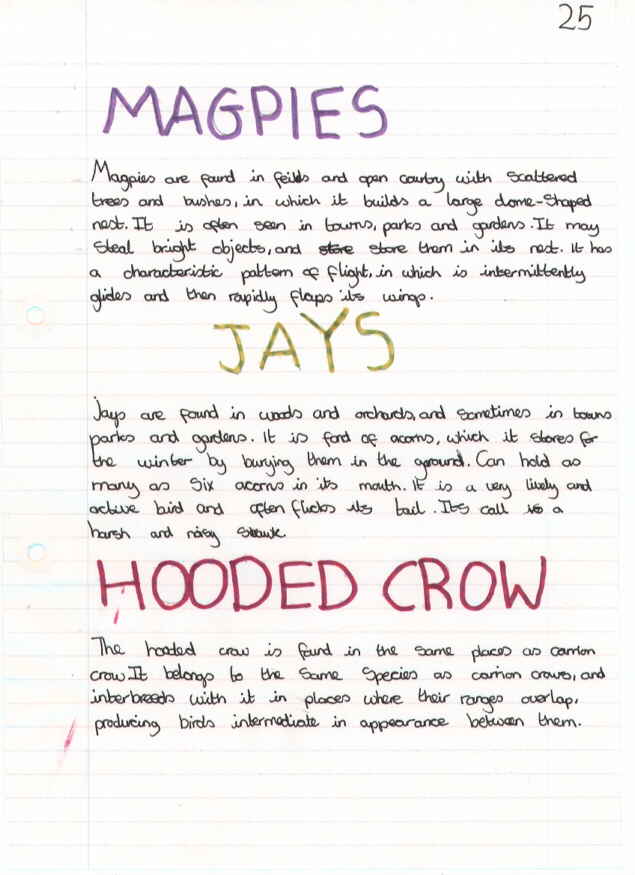 25
MAGPIES
Magpies are found in feilds and open country with scattered
trees and bushes, in which it builds a large dome-shaped
nest. It is often seen in towns, parks and gardens. It may
steal bright objects, and store store them in its nest. It has
a characteristic pattern of flight, in which is intermittently
glides and then rapidly flaps its wings.
JAYS
Jays are found in woods and orchards, and sometimes in towns
parks and gardens. It is fond of acorns, which it stores for
the winter by burying them in the ground. Can hold as
many as six acorns in its mouth. It is a very lively and
active bird and often flicks its tail. Its call is a
harsh and noisy
HOODED CROW
The hooded crow is found in the same places as carrion
crow. It belongs to the same species as carrion crows, and
interbreeds with it in places where their ranges overlap,
producing birds intermediate in appearance between them.